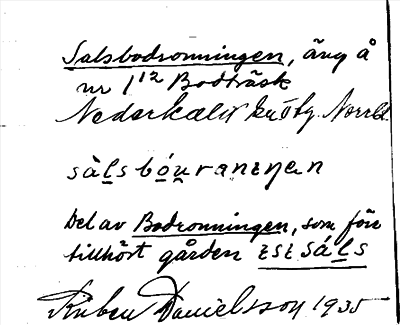 Salsbodronningen, äng å
nr 1¹² Bodträsk
Nederkalix Norrb.
sàlsbóuranɛŋan
Del av Bodronningen, som förr
tillhört gården ɛsɛ sáls
Ruben Danielsson 1935